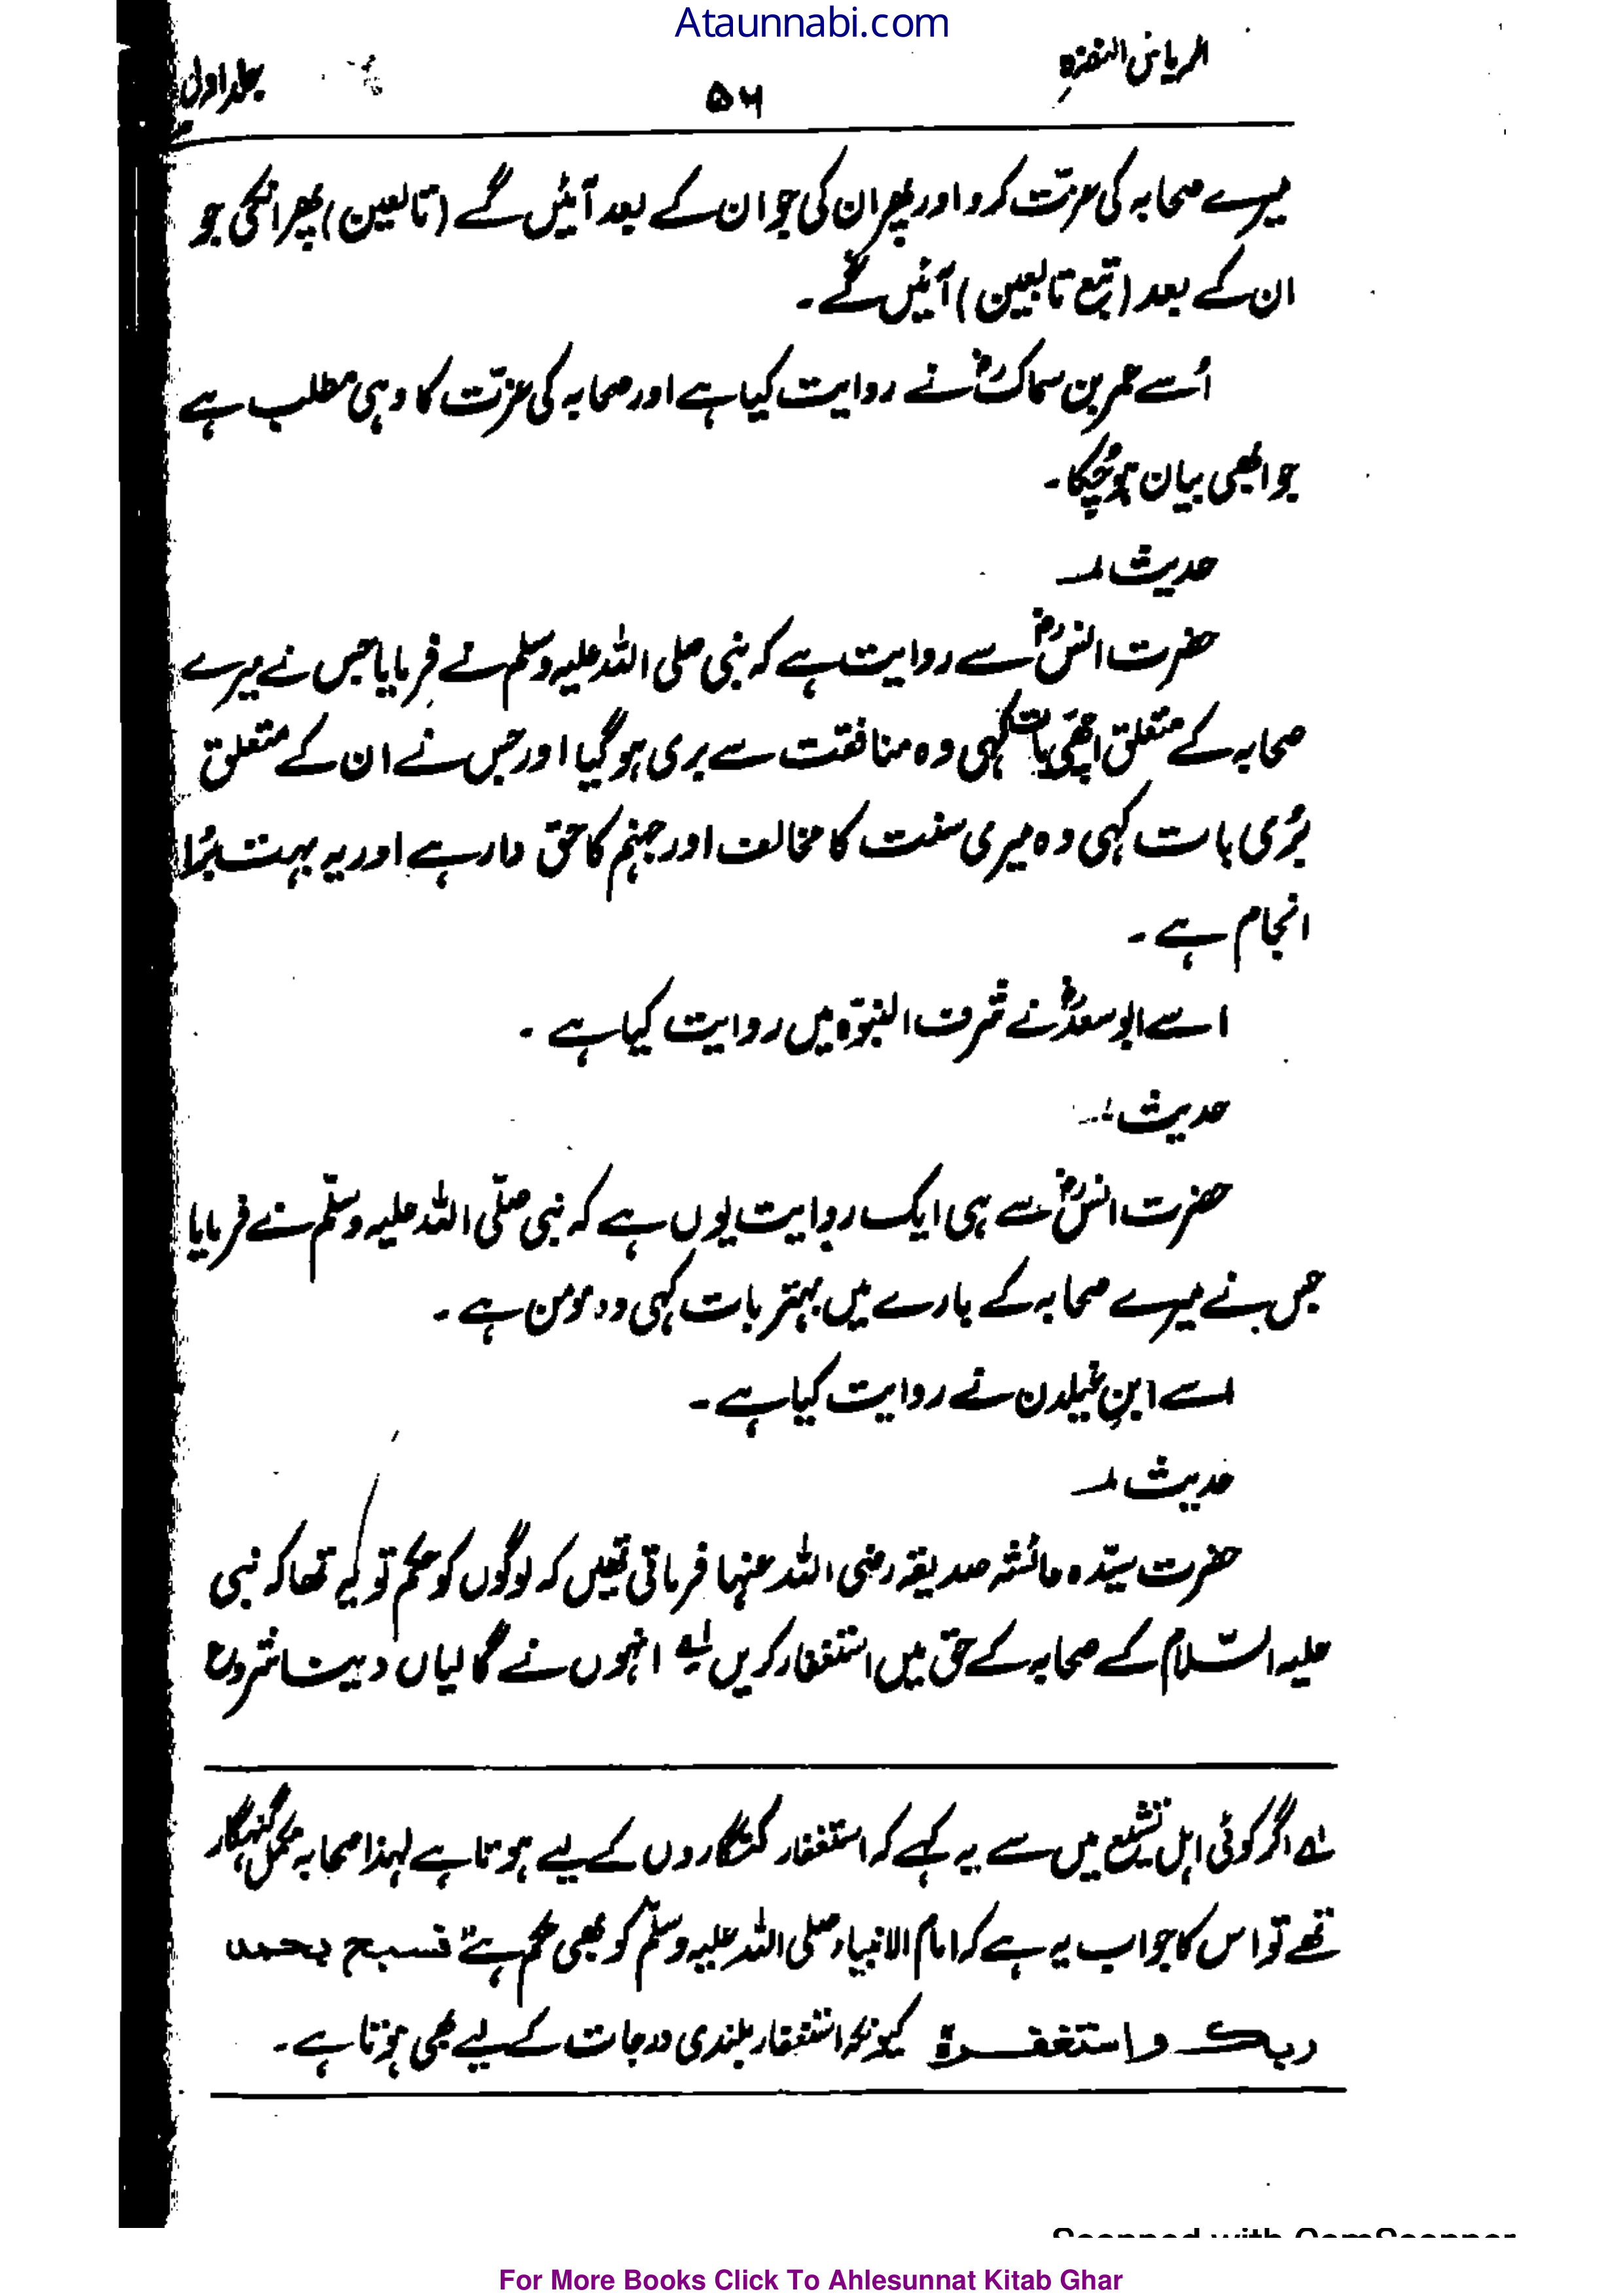 Ataunnabi.com
الریاض النضرہ ۵۶ جلد اول
میرے صحابہ کی عزت کرو اور پھر ان کی جو ان کے بعد آئیں گے (تابعین) پھر انکی جو
ان کے بعد (تبع تابعین) آئیں گے۔
اُسے عمر بن سماکؓ نے روایت کیا ہے اور صحابہ کی عزّت کا وہی مطلب ہے
جو ابھی بیان ہو چُکا۔
حدیث
حضرت انسؓ سے روایت ہے کہ نبی صلی اللہ علیہ وسلم نے فرمایا جس نے میرے
صحابہ کے متعلق اچھی بات کہی وہ منافقت سے بری ہو گیا اور جس نے ان کے متعلق
بُری بات کہی وہ میری سنت کا مخالف اور جہنم کا حق دار ہے اور یہ بہت بُرا
انجام ہے۔
اسے ابو سعدؓ نے شرف النبوّہ میں روایت کیا ہے۔
حدیث
حضرت انسؓ سے ہی ایک روایت یوں ہے کہ نبی صلّی اللہ علیہ وسلّم نے فرمایا
جس نے میرے صحابہ کے بارے میں بہتر بات کہی وہ مومن ہے۔
اسے ابنِ غیلان نے روایت کیا ہے۔
حدیث
حضرت سیّدہ عائشہ صدیقہ رضی اللہ عنہا فرماتی تھیں کہ لوگوں کو حکم تو یہ تھا کہ نبی
علیہ السّلام کے صحابہ کے حق میں استغفار کریں لے انہوں نے گالیاں دینا شروع
لے اگر کوئی اہل تشیع میں سے یہ کہے کہ استغفار گنہگاروں کے لیے ہوتا ہے لہذا صحابہ مکمل گنہگار
تھے تو اس کا جواب یہ ہے کہ امام الانبیاء صلی اللہ علیہ وسلّم کو بھی حکم ہے "فسبح بحمد
ربك واستغفرہ کیونکہ استغفار بلندی درجات کے لیے بھی ہوتا ہے۔
Scanned with CamScanner
For More Books Click To Ahlesunnat Kitab Ghar